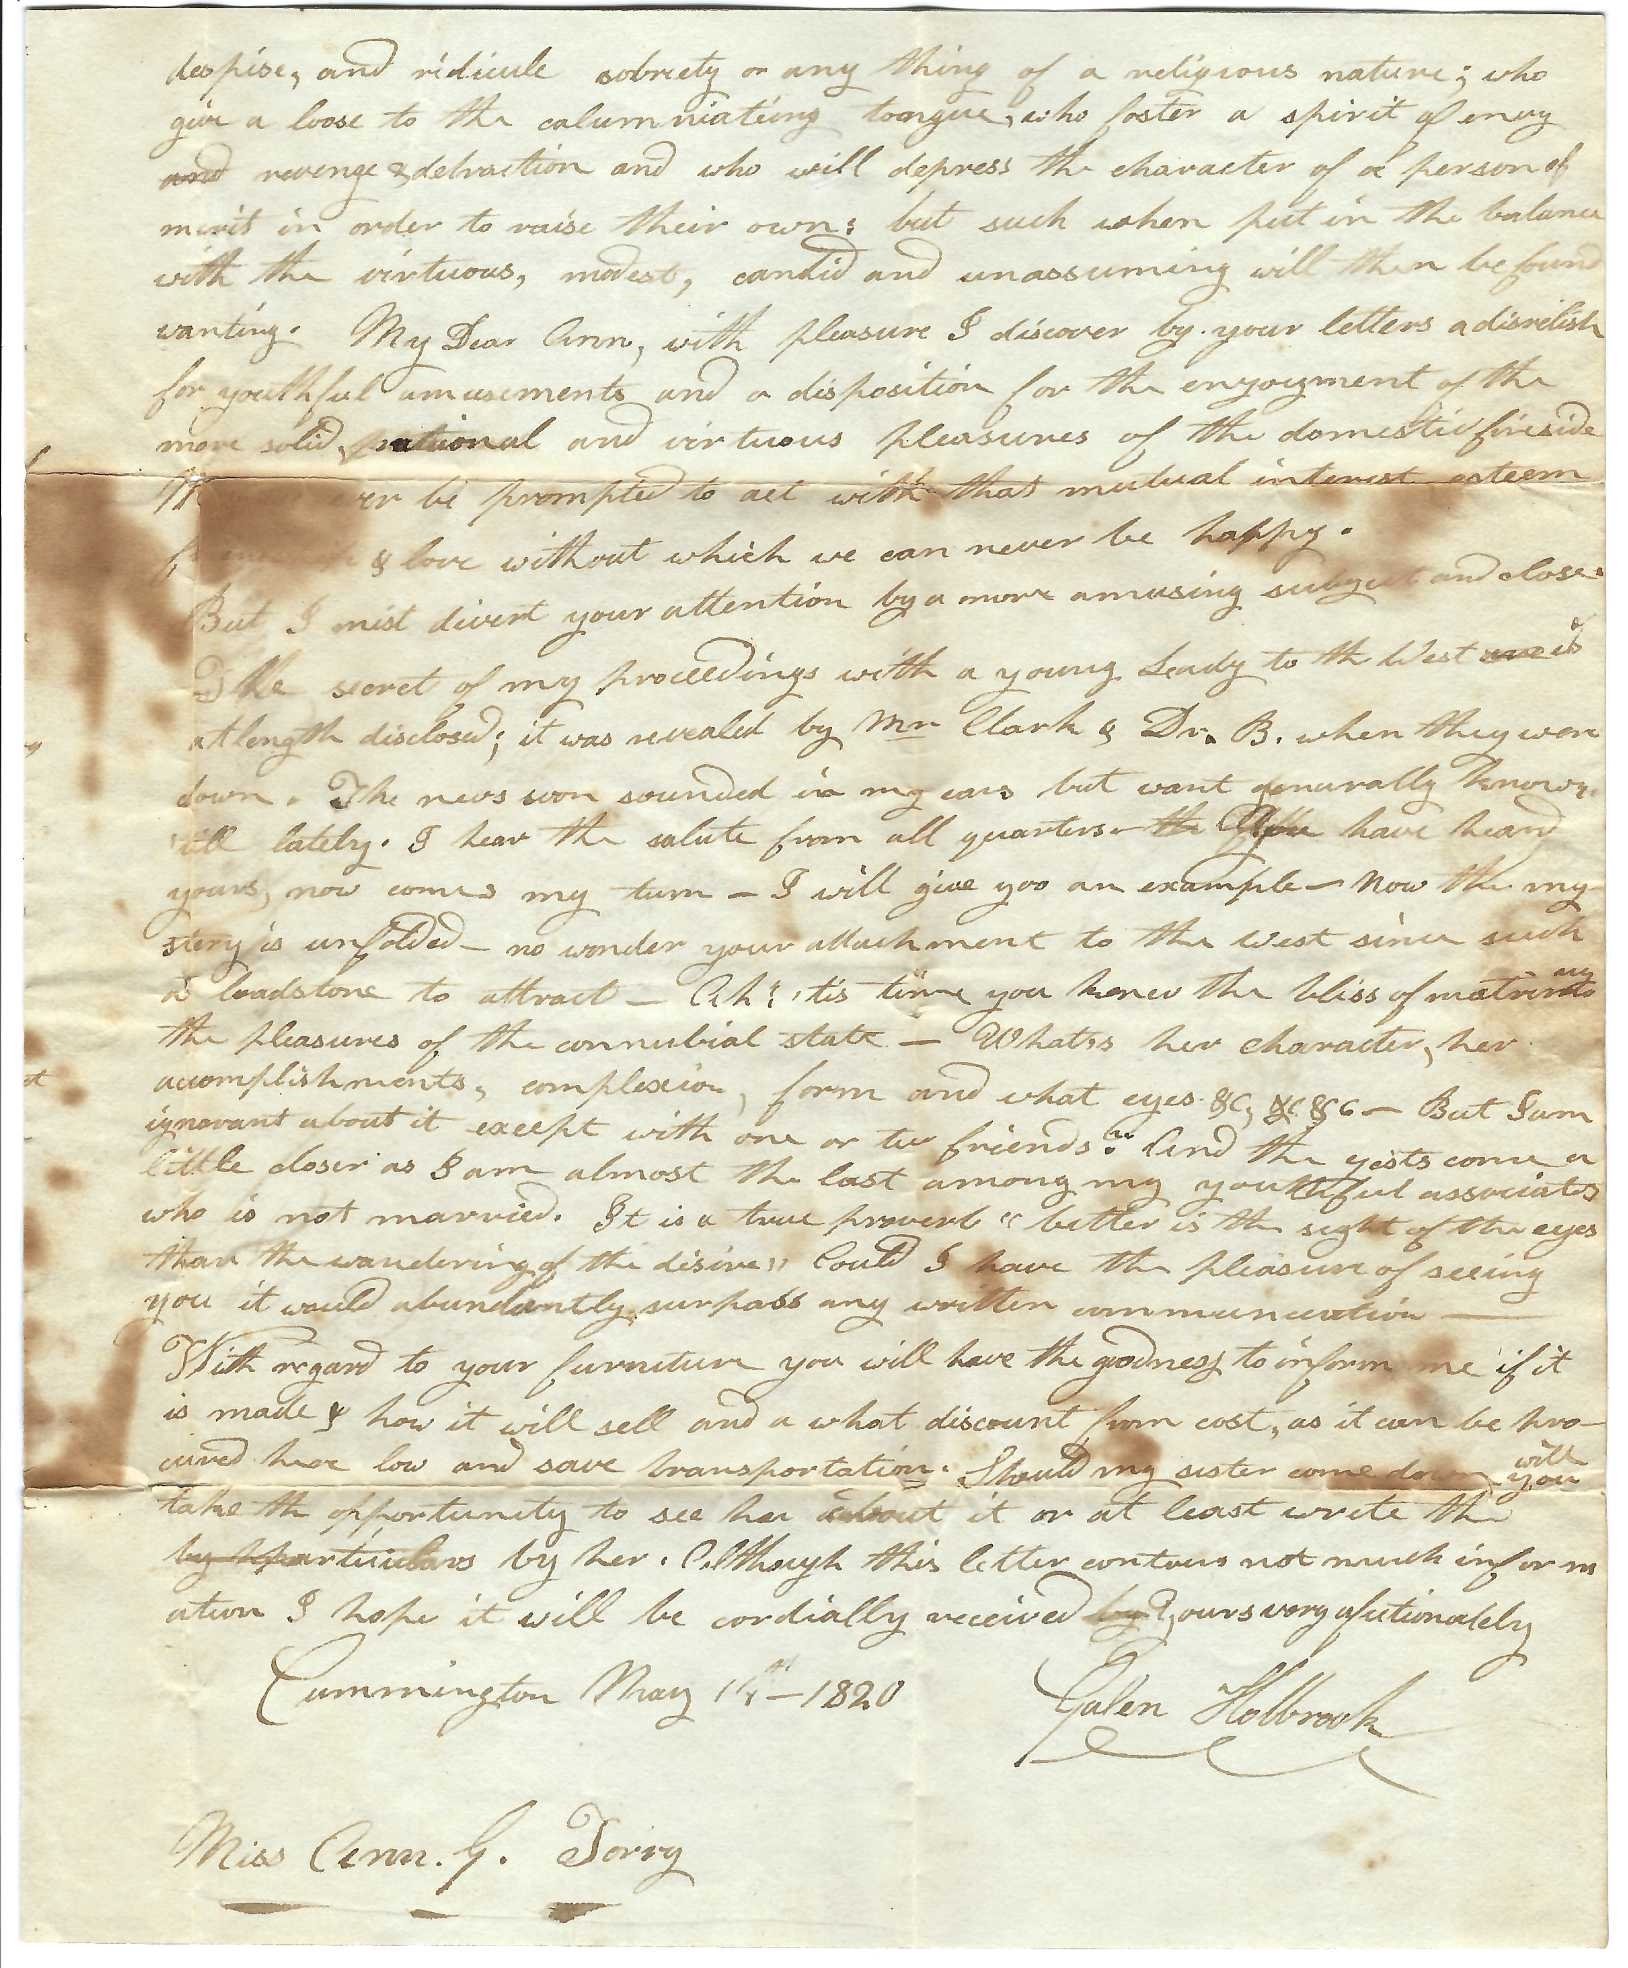 despise, and ridicule sobriety or any thing of a religious nature; who
give a loose to the calumniating tongue, who foster a spirit of envy
and revenge & detraction and who will depress the character of a person of
merit in order to raise their own: but such when put in the balance
with the virtuous, modest, candid and unassuming will then be found
wanting. My Dear Ann, with pleasure I discover by your letters a disrelish
for youthful amusements and a disposition for the enjoyment of the
more solid, rational and virtuous pleasures of the domestic fireside
be prompted to act with that mutual interest esteem
& love without which we can never be happy.
But I mist divert your attention by a more amusing subject and close.
The secret of my proceedings with a young Leady to the West is
at length disclosed; it was revealed by Mr Clark & Dr. B. when they were
down. The news soon sounded in my ears but want generally known
till lately. I hear the salute from all quarters - the You have heard
yours, now comes my turn - I will give yoo an example - Now the my-
stery is unfolded - no wonder your attachment to the West since such
a loadstone to attract - Ah! 'tis time you knew the bliss of matrimony
the pleasures of the connubial state - Whats her character, her
accomplishments, complexion, form and what eyes &c, &c &c - But I am
ignorant about it except with one or two friends." And the jests come a
little closer as I am almost the last among my youthful associates
who is not married. It is a true proverb "better is the sight of the eyes
than the wandering of the desire" Could I have the pleasure of seeing
you it would abundantly surpass any written communication —
With regard to your furniture you will have the goodness to inform me if it
is made & how it will sell and a what discount from cost, as it can be pro-
cured here low and save transportation. Should my sister come down will you
take th opportunity to see her about it or at least write the
by particulars by her. Although this letter contains not much inform
ation I hope it will be cordially received by Yours very afectionately
Cummington May 14th - 1820 Galen Holbrook
Miss Ann. G. Torry